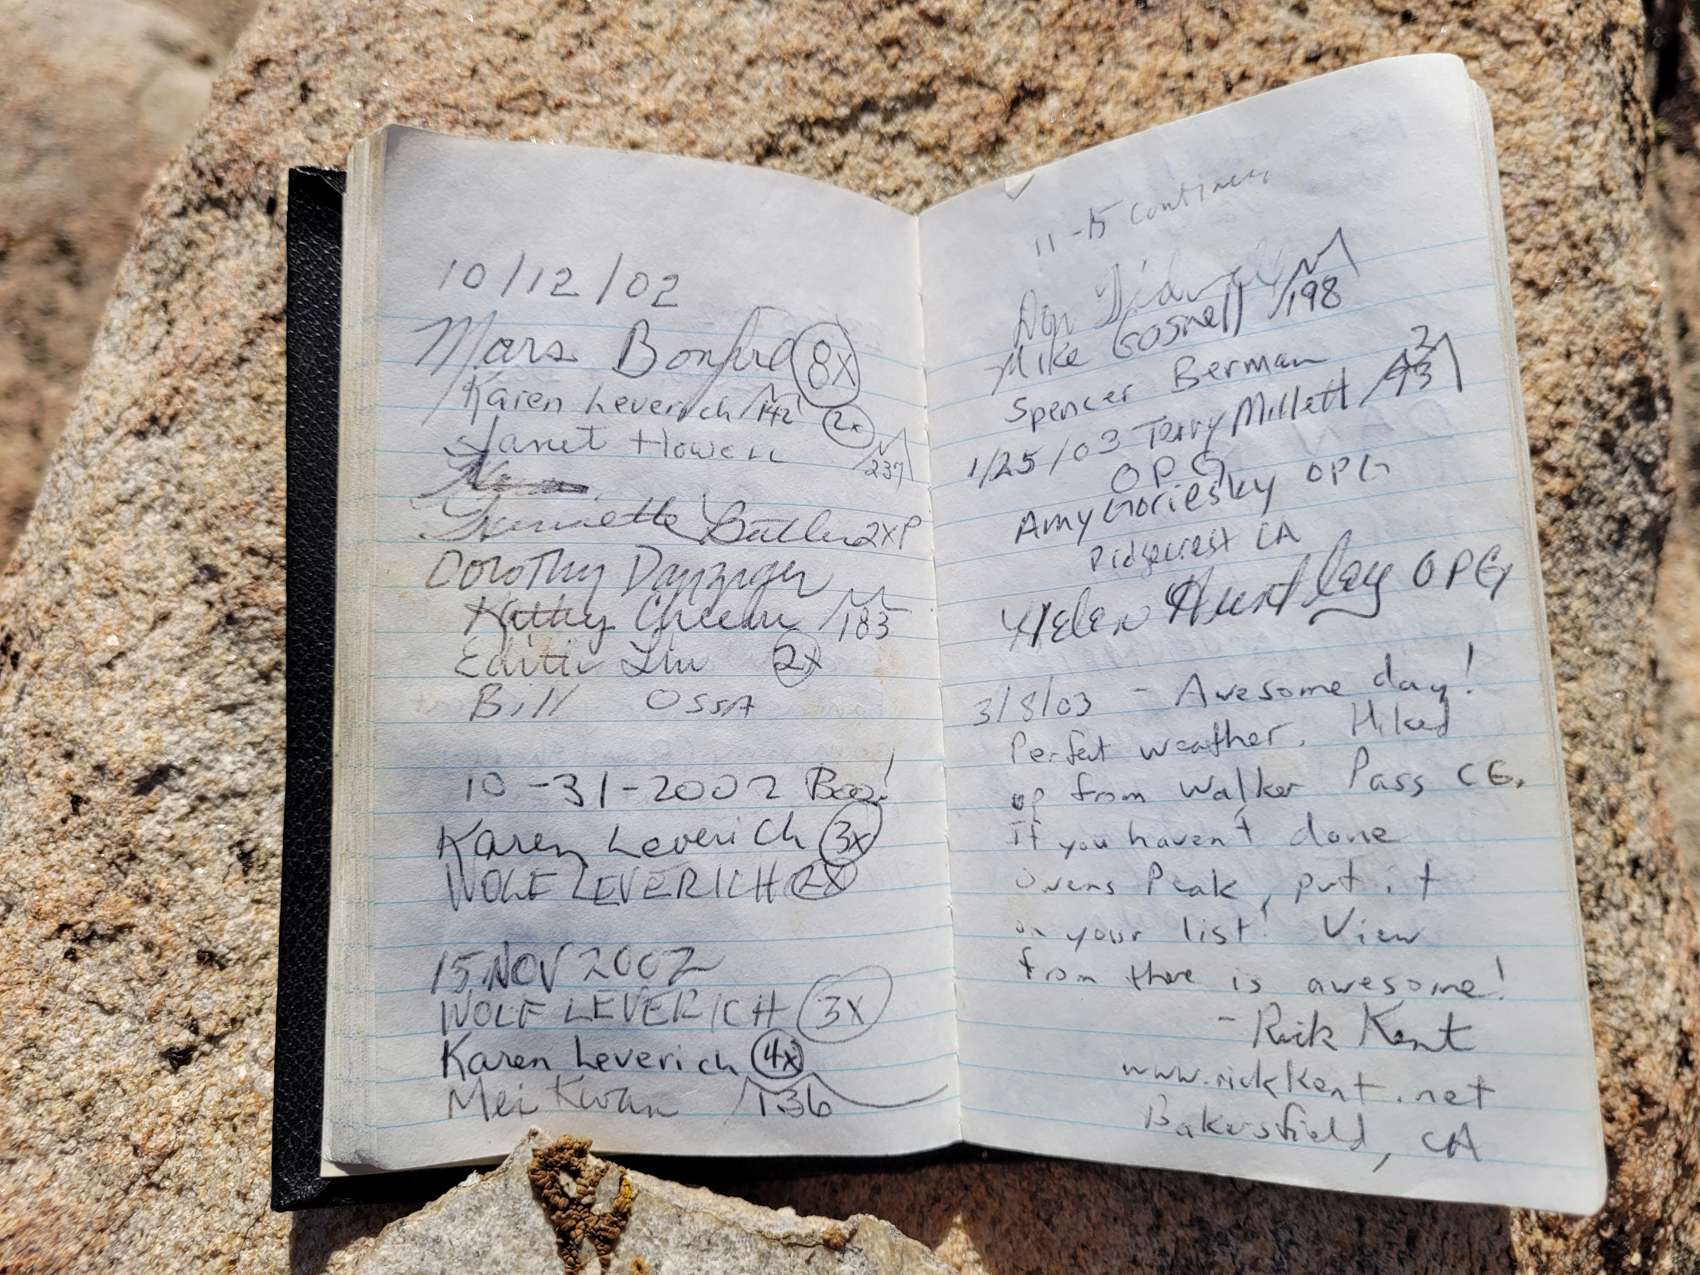 10/12/02
Mars Bonfire 8X
Karen Leverich 142 2x
Janet Howell 237
Butler 2XP
Dorothy Danziger
Kathy Cheever 183
Edith Liu 2x
Bill OSSA
10-31-2002 Boo!
Karen Leverich 3x
WOLF LEVERICH 2X
15 NOV 2002
WOLF LEVERICH 3X
Karen Leverich 4x
Mei Kwan 136
11-15 continued
Don Tidwell
Mike Gosnell 198
Spencer Berman
1/25/03 Terry Millett
OPG
Amy Goriesky OPG
Ridgecrest CA
Helen Huntley OPG
3/8/03 - Awesome day!
Perfect weather. Hiked
up from Walker Pass CG.
If you haven't done
Owens Peak, put it
on your list! View
from there is awesome!
- Rick Kent
www.rickkent.net
Bakersfield, CA